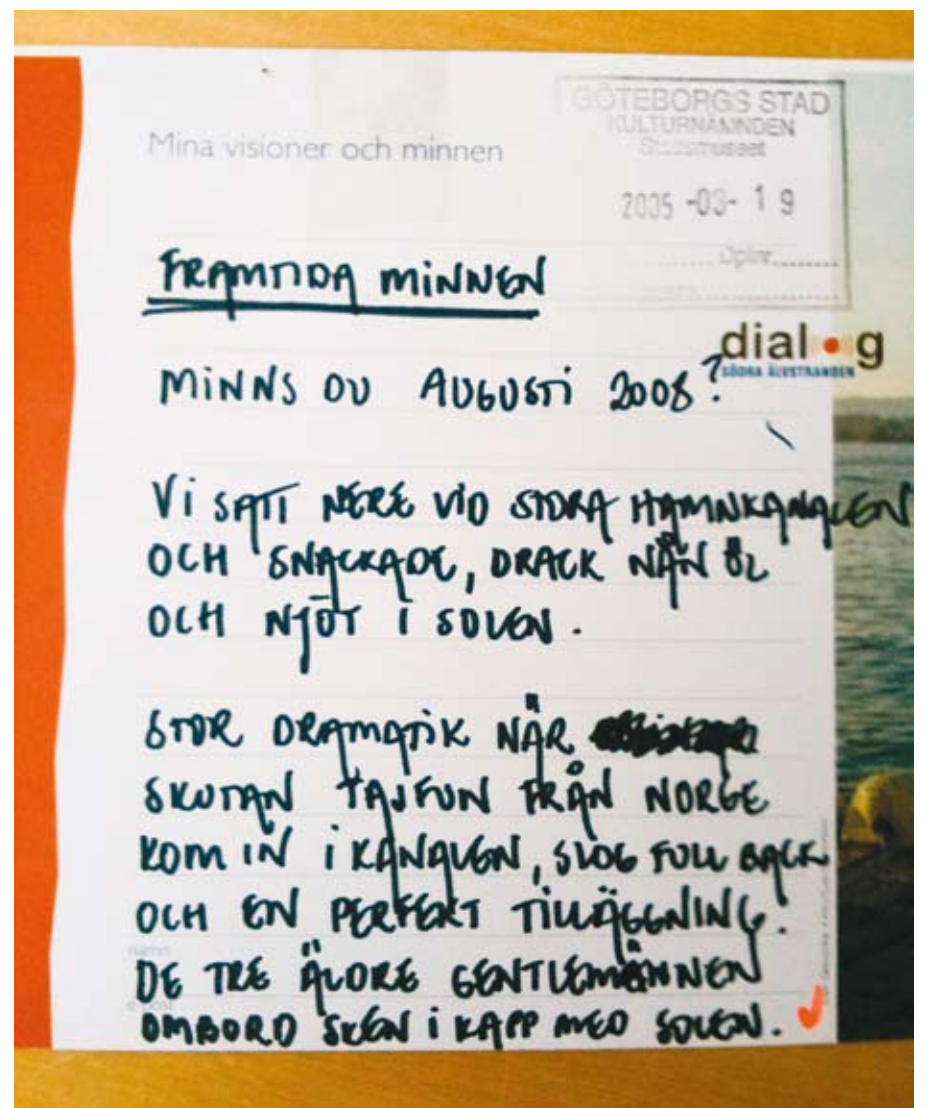 GÖTEBORGS STAD
KULTURNÄMNDEN
Stadsmuseet
Mina visioner och minnen
2005 -03- 19
Dplnr
FRAMTIDA MINNEN
dialog
SÖDRA ÄLVSTRANDEN
MINNS DU AUGUSTI 2008?
VI SATT NERE VID STORA HAMNKANALEN
OCH SNACKADE, DRACK NÅN ÖL
OCH NJÖT I SOLEN.
STOR DRAMATIK NÄR
SKUTAN TAJFUN FRÅN NORGE
KOM IN I KANALEN, SLOG FULL BACK
OCH EN PERFEKT TILLÄGGNING.
namn
DE TRE ÄLDRE GENTLEMÄNNEN
e-post
OMBORD SKEN I KAPP MED SOLEN.